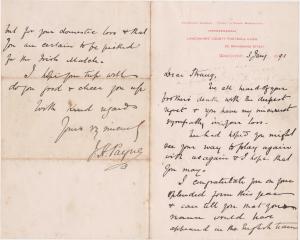 LANCASHIRE COUNTY FOOTBALL CLUB
5 Jany 1891
Dear Strang,
We all heard of your
brother's death with the deepest
regret & you have my sincerest
sympathy in your loss.
We had hoped you might
see your way to play again
with us again & I hope that
you may.
I congratulate you on your
splendid form this year
& can tell you that your
name would have
appeared in the English team
but for your domestic loss & that
you are certain to be picked
for the Irish Match.
I hope your trip will
do you good & cheer you up
With kind regards
Yours very sincerely
J H Payne